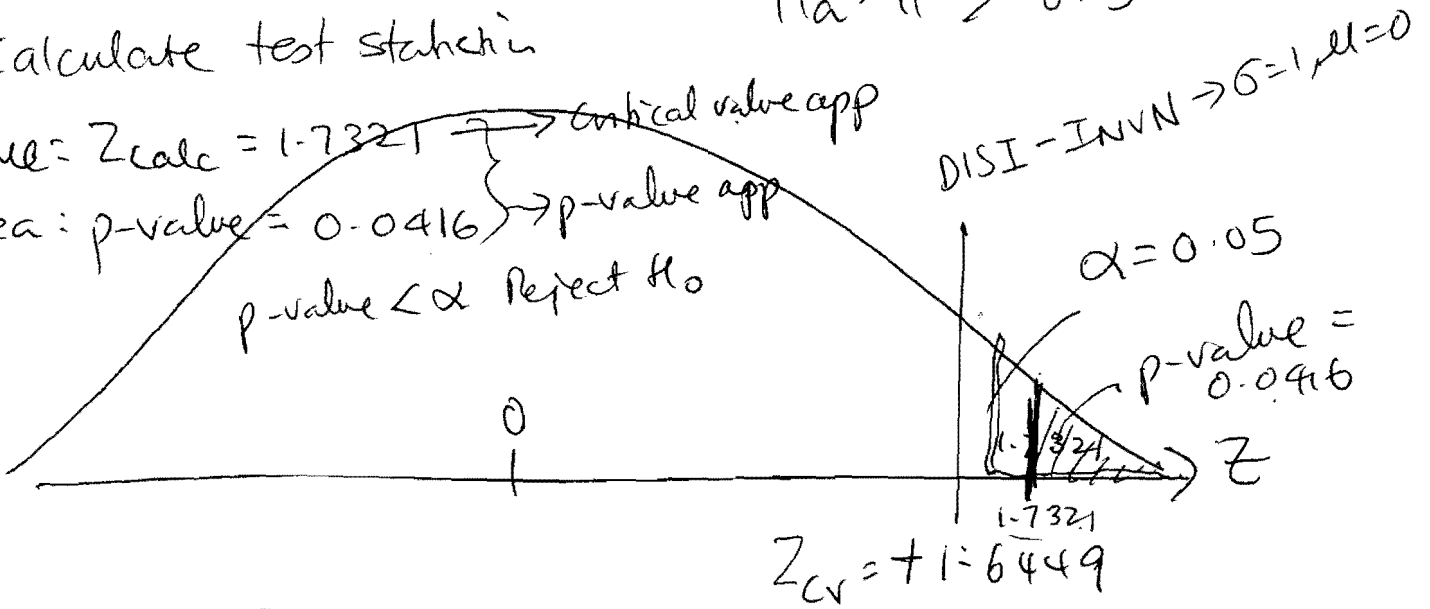 Calculate test statistic
ue = Zcalc = 1.7321 → Critical value app
ea : p-value = 0.0416 } → p-value app
p-value < α Reject H₀
DISI-INVN → σ=1, μ=0
α = 0.05
p-value =
0.0416
0
1.7321
Z
1.7321
Zcv = + 1.6449